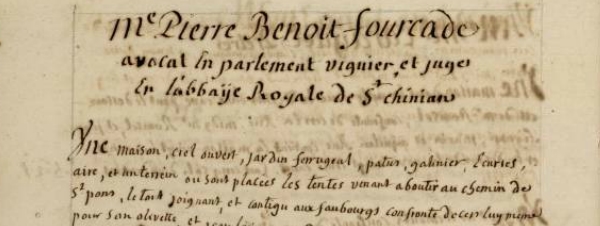 Mᵉ Pierre Benoit fourcade
avocat En parlement viguier, et juge
En L'abbaÿe Royale de Sᵗ chinian
Vne maison, ciel ouvert, Jardin ferrageal, patus, galinier, Ecuries,
aire, et un terrein ou sont placées les tentes venant aboutir au chemin de
Sᵗ pons, le tout joignant, et contigu aux faubourgs confronte de cers luy meme
pour Son olivette, et